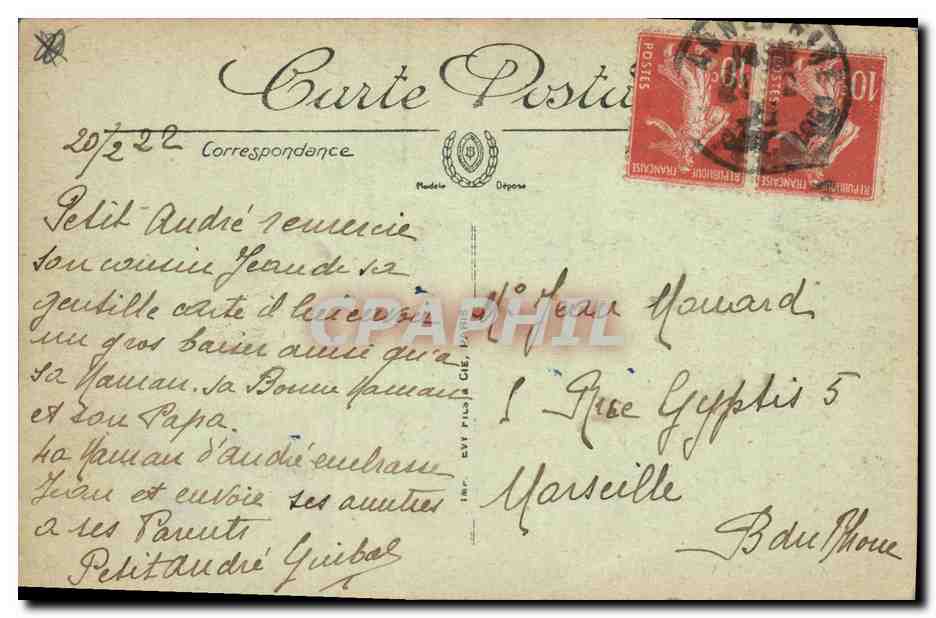 Carte Posta
20/2 22
Correspondance
Modèle Déposé
POSTES
10 c
REPUBLIQUE FRANÇAISE
POSTES
10
REPUBLIQUE FRANÇAISE
Petit André remercie
son cousin Jean de sa
gentille carte il lui envoie
un gros baiser ainsi qu'a
sa Maman. sa Bonne Maman
et son Papa.
La Maman d'André embrasse
Jean et envoie ses
a ses Parents
Petit André Guibal
CPAPHIL
IMP. LEVY FILS & CIE, PARIS
Mr Jean Monard
1 Rue Gyptis 5
Marseille
B du Rhone